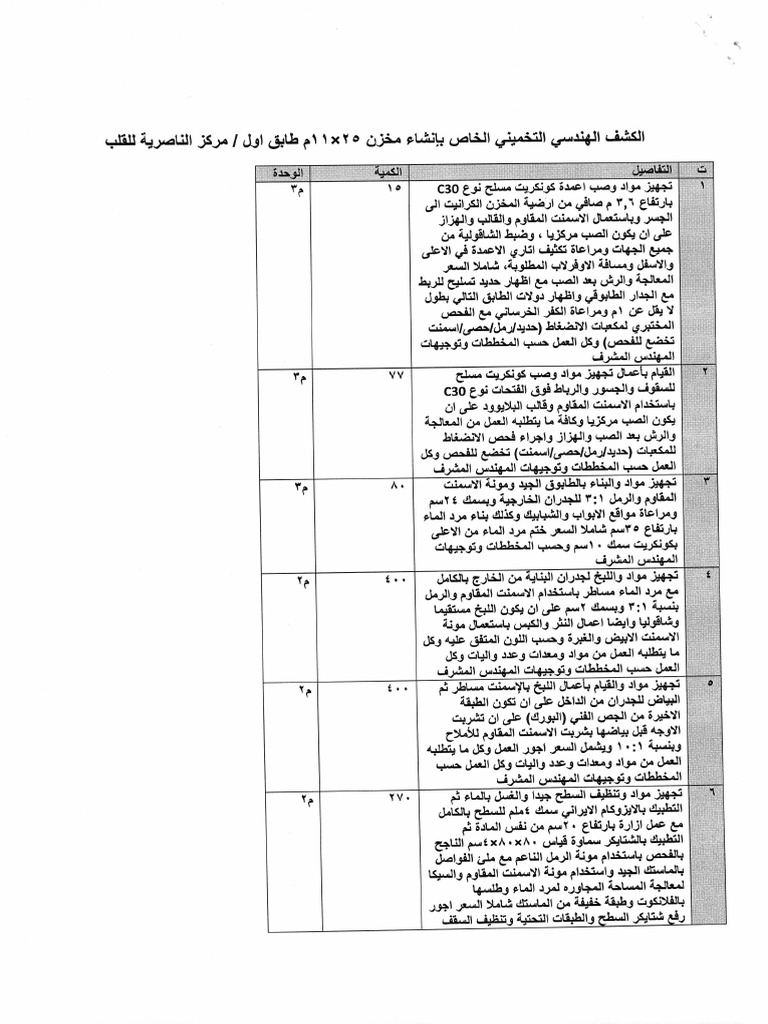 الكشف الهندسي التخميني الخاص بإنشاء مخزن ٢٥×١١م طابق اول / مركز الناصرية للقلب
ت التفاصيل الكمية الوحدة
١ تجهيز مواد وصب اعمدة كونكريت مسلح نوع C30 ١٥ م٣
بارتفاع ٣,٦ م صافي من ارضية المخزن الكرانيت الى
الجسر وباستعمال الاسمنت المقاوم والقالب والهزاز
على ان يكون الصب مركزيا ، وضبط الشاقولية من
جميع الجهات ومراعاة تكثيف اتاري الاعمدة في الاعلى
والاسفل ومسافة الاوفرلاب المطلوبة، شاملا السعر
المعالجة والرش بعد الصب مع اظهار حديد تسليح للربط
مع الجدار الطابوقي واظهار دولات الطابق التالي بطول
لا يقل عن ١م ومراعاة الكفر الخرساني مع الفحص
المختبري لمكعبات الانضغاط (حديد/رمل/حصى/اسمنت
تخضع للفحص) وكل العمل حسب المخططات وتوجيهات
المهندس المشرف
٢ القيام بأعمال تجهيز مواد وصب كونكريت مسلح ٧٧ م٣
للسقوف والجسور والرباط فوق الفتحات نوع C30
باستخدام الاسمنت المقاوم وقالب البلايوود على ان
يكون الصب مركزيا وكافة ما يتطلبه العمل من المعالجة
والرش بعد الصب والهزاز واجراء فحص الانضغاط
للمكعبات (حديد/رمل/حصى/اسمنت) تخضع للفحص وكل
العمل حسب المخططات وتوجيهات المهندس المشرف
٣ تجهيز مواد والبناء بالطابوق الجيد ومونة الاسمنت ٨٠ م٣
المقاوم والرمل ٣:١ للجدران الخارجية وبسمك ٢٤سم
ومراعاة مواقع الابواب والشبابيك وكذلك بناء مرد الماء
بارتفاع ٣٥سم شاملا السعر ختم مرد الماء من الاعلى
بكونكريت سمك ١٠سم وحسب المخططات وتوجيهات
المهندس المشرف
٤ تجهيز مواد واللبخ لجدران البناية من الخارج بالكامل ٤٠٠ م٢
مع مرد الماء مساطر باستخدام الاسمنت المقاوم والرمل
بنسبة ٣:١ وبسمك ٢سم على ان يكون اللبخ مستقيما
وشاقوليا وايضا اعمال النثر والكبس باستعمال مونة
الاسمنت الابيض والغبرة وحسب اللون المتفق عليه وكل
ما يتطلبه العمل من مواد ومعدات وعدد واليات وكل
العمل حسب المخططات وتوجيهات المهندس المشرف
٥ تجهيز مواد والقيام بأعمال اللبخ بالإسمنت مساطر ثم ٤٠٠ م٢
البياض للجدران من الداخل على ان تكون الطبقة
الاخيرة من الجص الفني (البورك) على ان تشربت
الاوجه قبل بياضها بشربت الاسمنت المقاوم للأملاح
وبنسبة ١٠:١ ويشمل السعر اجور العمل وكل ما يتطلبه
العمل من مواد ومعدات وعدد واليات وكل العمل حسب
المخططات وتوجيهات المهندس المشرف
٦ تجهيز مواد وتنظيف السطح جيدا والغسل بالماء ثم ٢٧٠ م٢
التطبيك بالايزوكام الايراني سمك ٤ملم للسطح بالكامل
مع عمل ازارة بارتفاع ٢٠سم من نفس المادة ثم
التطبيك بالشتايكر سماوة قياس ٨٠×٨٠×٤سم الناجح
بالفحص باستخدام مونة الرمل الناعم مع ملئ الفواصل
بالماستك الجيد واستخدام مونة الاسمنت المقاوم والسيكا
لمعالجة المساحة المجاوره لمرد الماء وطلسها
بالفلانكوت وطبقة خفيفة من الماستك شاملا السعر اجور
رفع شتايكر السطح والطبقات التحتية وتنظيف السقف